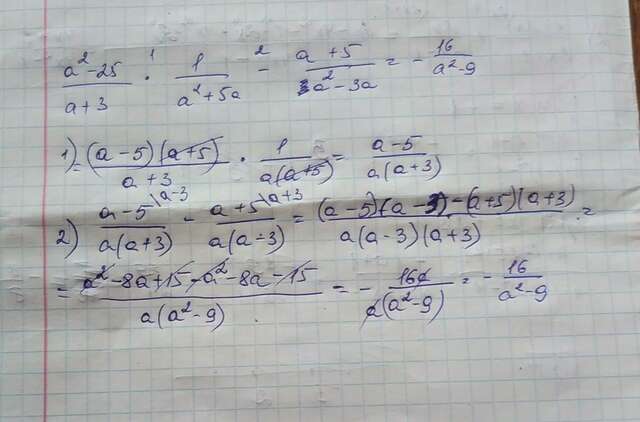 (a²-25)/(a+3) · 1/(a²+5a) - (a+5)/(a²-3a) = - 16/(a²-9)
1) = (a-5)(a+5)/(a+3) · 1/(a(a+5)) = (a-5)/(a(a+3))
2) (a-5)/(a(a+3)) \a-3 - (a+5)/(a(a-3)) \a+3 = ((a-5)(a-3)-(a+5)(a+3))/(a(a-3)(a+3)) =
= (a²-8a+15-a²-8a-15)/(a(a²-9)) = - 16a/(a(a²-9)) = - 16/(a²-9)